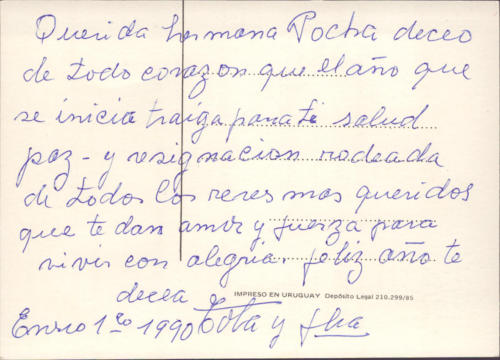 Querida hermana Pocha deceo
de todo corazon que el año que
se inicia traiga para ti salud
paz - y resignacion rodeada
de todos los seres mas queridos
que te dan amor y fuerza para
vivir con alegria. feliz año te
decea
IMPRESO EN URUGUAY Depósito Legal 210.299/85
Enero 1ro 1990 Tota y